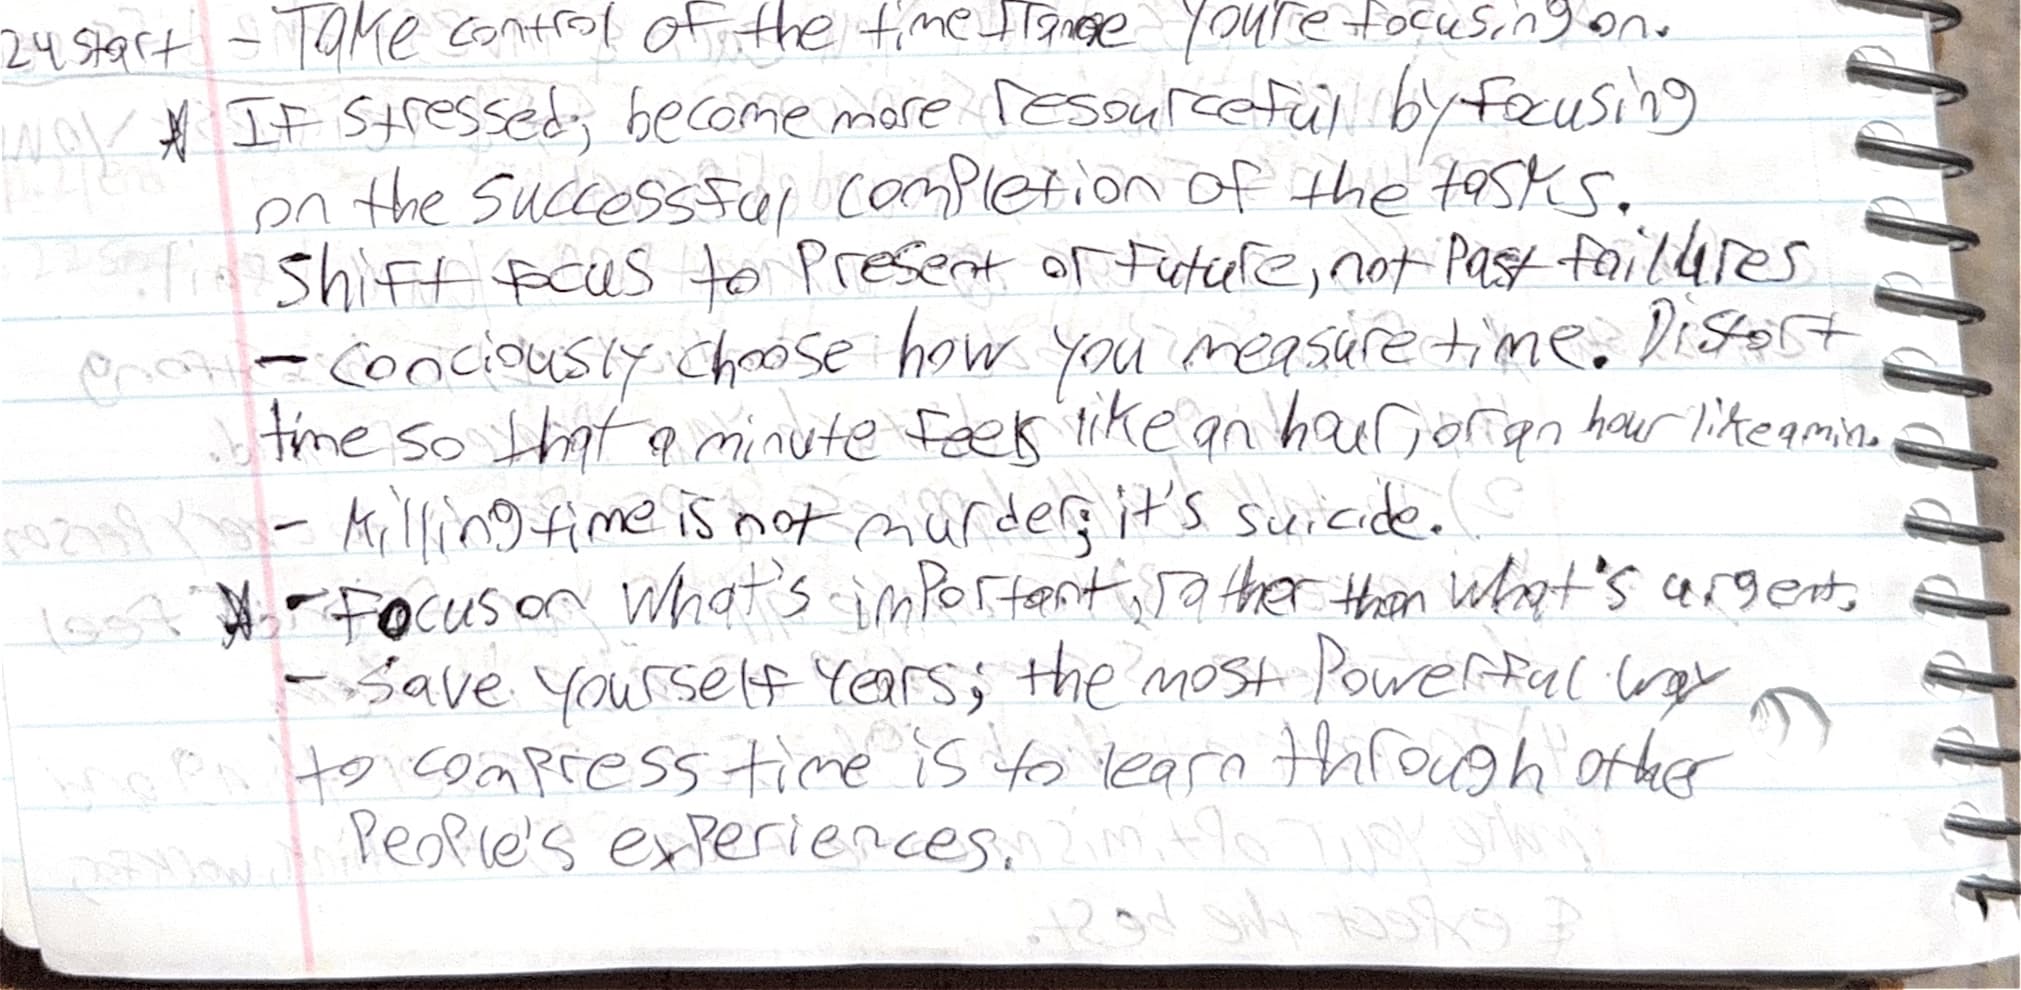 24 start - Take control of the time frame you're focusing on.
* If stressed, become more resourceful by focusing
on the successful completion of the tasks.
Shift focus to present or future, not past failures
- Conciously choose how you measure time. Distort
time so that a minute feels like an hour, or an hour like a min.
- Killing time is not murder; it's suicide.
* - Focus on what's important, rather than what's urgent.
- Save yourself years; the most powerful way
to compress time is to learn through other
people's experiences.